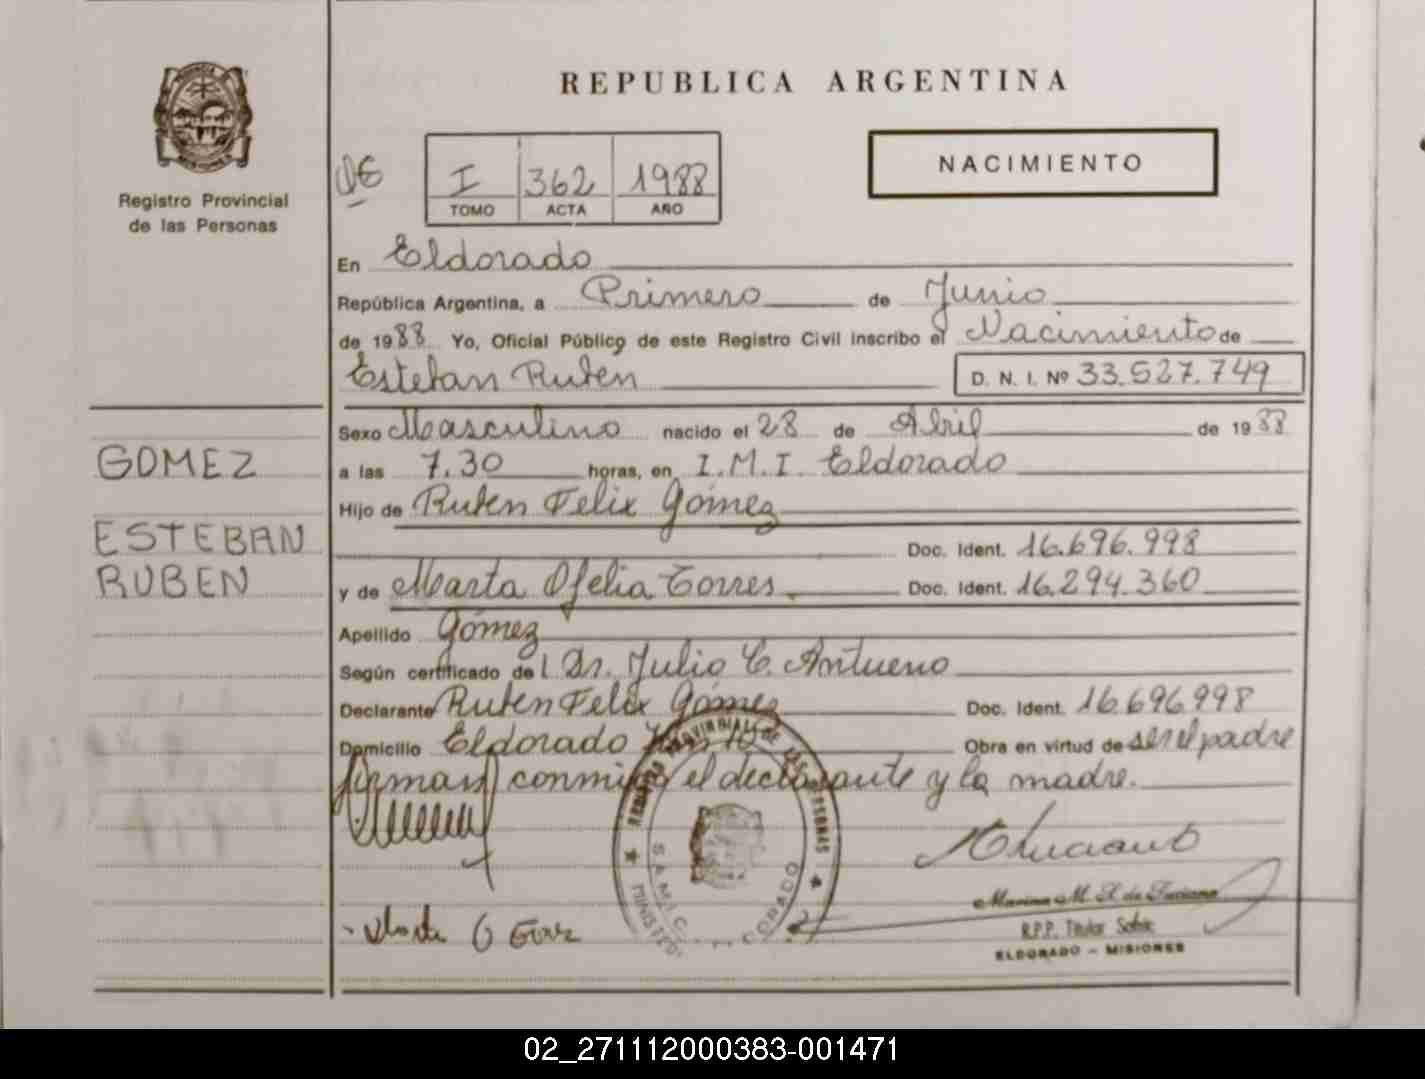 Registro Provincial
de las Personas
REPUBLICA ARGENTINA
NACIMIENTO
I 362 1988
TOMO ACTA AÑO
En Eldorado
República Argentina, a Primero de Junio
de 1988 Yo, Oficial Público de este Registro Civil inscribo el Nacimiento de
Esteban Ruben D. N. I. Nº 33.527.749
GOMEZ
ESTEBAN
RUBEN
Sexo Masculino nacido el 28 de Abril de 1988
a las 7.30 horas, en I.M.I. Eldorado
Hijo de Ruben Felix Gómez
Doc. Ident. 16.696.998
y de Marta Ofelia Torres. Doc. Ident. 16.294.360
Apellido Gómez
Según certificado del Dr. Julio C. Antueno
Declarante Ruben Felix Gómez Doc. Ident. 16.696.998
Domicilio Eldorado Obra en virtud de ser el padre
firman conmigo el declarante y la madre.
REGISTRO PROVINCIAL DE LAS PERSONAS
R.P.P. Titular
ELDORADO - MISIONES
02_271112000383-001471